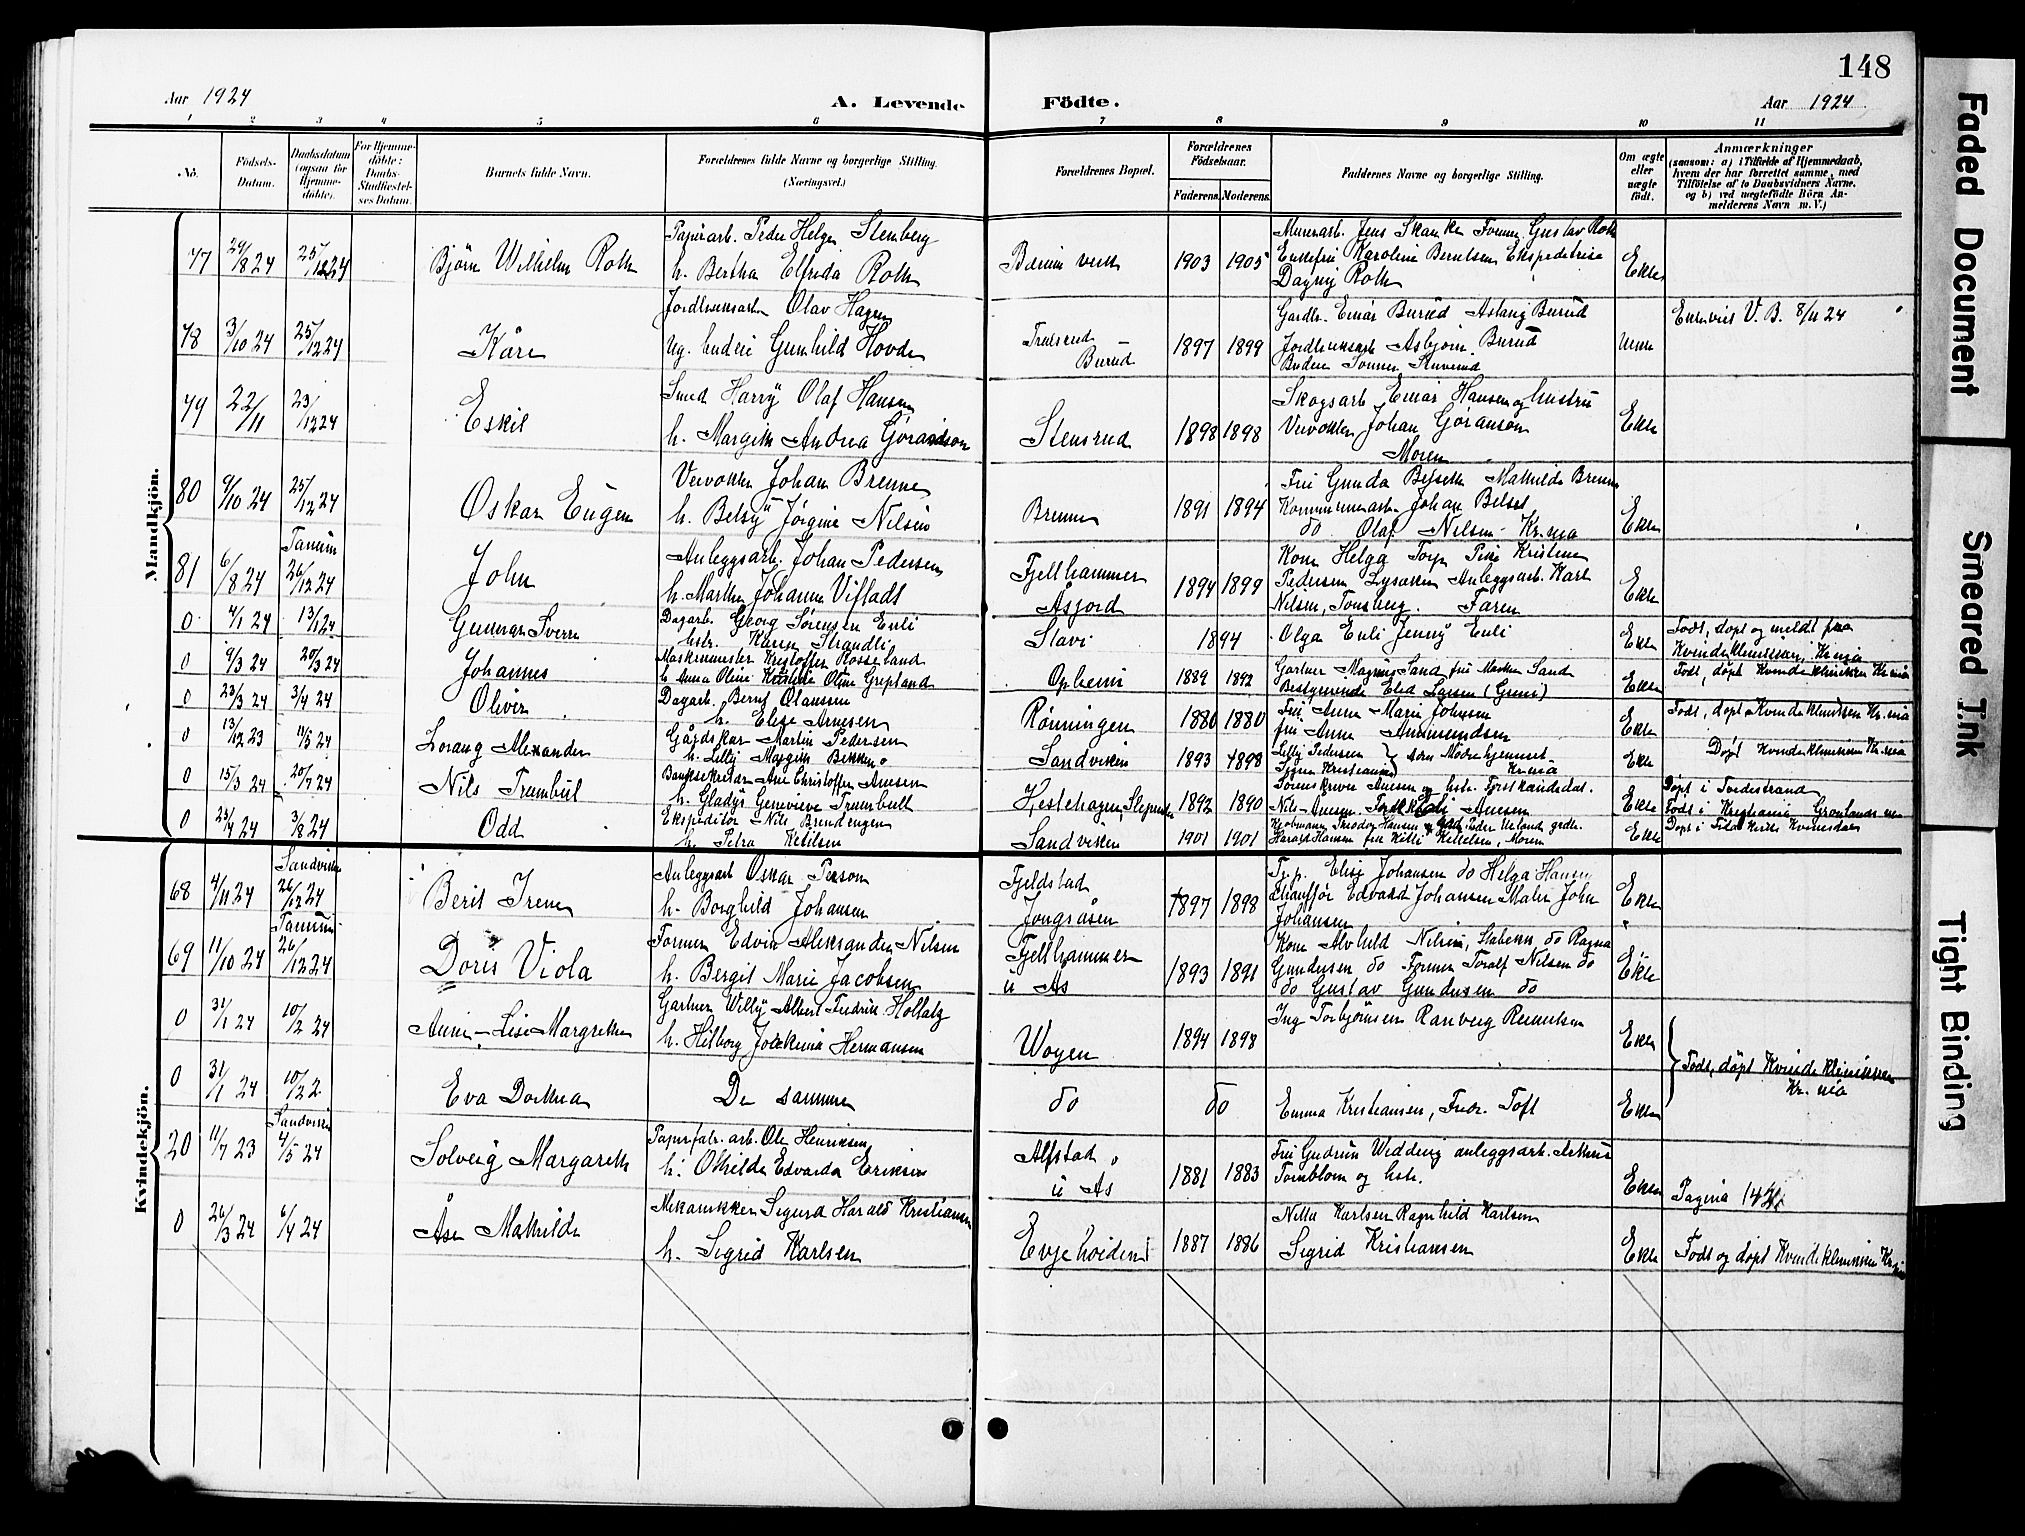 148
Aar 1924
A. Levende Födte.
Aar 1924
1 2 3 4 5 6 7 8 9 10 11
No.
Födsels-Datum.
Daabsdatum (ogsaa for Hjemme-döbte).
For Hjemme-döbte: Daabs-Stadfæstel-ses Datum.
Barnets fulde Navn.
Forældrenes fulde Navne og borgerlige Stilling.
(Næringsvei.)
Forældrenes Bopæl.
Forældrenes Födselsaar.
Faderens. Moderens.
Faddernes Navne og borgerlige Stilling.
Om ægte eller uægte födt.
Anmærkninger
(saasom: a) i Tilfælde af Hjemmedaab,
hvem der har forrettet samme, med
Tilföielse af to Daabsvidners Navne.
og b) ved uægtefödte Börn An-
melderens Navn m. V.)
Mandkjön.
77 24/8 24 25/12 24 Björn Wilhelm Roth
Papirarb. Peder Helge Stenberg
h. Bertha Elfrida Roth
Bærums verk 1903 1905
Murerarb. Jens Skanke Former Gustav Roth
Enkefru Karoline Berntsen Ekspeditrise
Dagny Roth
Ekte
78 3/10 24 25/12 24 Kåre
Jordbruksarb. Olav Hagen
Ug. Gunhild Hovde
Burud 1897 1899
Gardbr. Einar Burud Aslaug Burud
Jordbruksarb Asbjörn Burud
V. B. 8/11 24
79 22/11 23/12 24 Eskil
Smed Harry Olaf Hansen
h. Margith Andrea Göransson
Stensrud 1898 1898
Skogsarb Einar Hansen og hustru
Johan Göranson
Moren
Ekte
80 9/10 24 25/12 24 Oskar Eugen
Johan Brenne
h. Betsy Jörgine Nilsen
Brenne 1891 1894
Fru Gunda Mathilde Brenne
Kommunearb. Johan
do Olaf Nelsen Kr.nia
Ekte
81 6/8 24 Tanum 26/12 24 John
Anleggsarb. Johan Pedersen
h. Marthe Johanne Vifladt
Fjellhammer
Åsjord 1894 1899
Kone Helga Torp Pike Kristine
Pedersen Lysaker Anleggsarb. Karl
Nilsen, Tönsberg. Faren
Ekte
0 4/1 24 13/1 24 Gunnar Sverre
Dagarb. Georg Sörensen Enli
hstr. Karen Strandli
Slavi 1894
Olga Enli Jenny Enli
Ekte
Födt, döpt og meldt fra
Kvindeklinikken, Kr.nia
0 9/3 24 20/3 24 Johannes
Maskinmester Kristoffer Rosseland
Opheim 1889 1892
Gartner Magnus Sand fru Marthe Sand
Bestyrerinde Elid Larsen
Ekte
Födt, döpt Kvindeklinikken Kr.nia
0 23/3 24 3/4 24 Oliver
Dagarb. Bernt Olaussen
h. Elise Arnesen
Rönningen 1880 1880
Fru Anne Marie Johnsen
fru Anna Amundsen
Ekte
Födt, döpt Kvindeklinikken Kr.nia
0 13/12 23 11/5 24 Lorang Alexander
Gårdskar Martin Pedersen
h. Lilly Margith Bekken
Sandviken 1893 1898
Lilly Pedersen
Kr.nia
Ekte
Döpt Kvindeklinikken Kr.nia
0 15/3 24 20/7 24 Nils Trumbul
Banksekretær Christoffer Anesen
h. Gladys Genevieve Trumbull
Hestehagen, Slependen 1892 1890
Sorenskriver og hstr. Forstkandidat.
Nils
Ekte
Döpt i Tvedestrand
Födt i Kristiania
0 23/4 24 3/8 24 Odd
Ekspeditör Nils Brudengen
h. Petra Ketilsen
Sandviken 1901 1901
Kjöbmann Theodor Hansen
Harald Hansen fru Ketilsen, Moren
Ekte
Döpt i Kirke Kvinesdal
Kvindekjön.
68 4/11 24 Sandviken 26/12 24 Berit Irene
Anleggsarb Oskar Person
h. Borghild Johansen
Fjeldstad
Jongsåsen 1897 1898
Elise Johansen do Helga Hansen
Chauffør Edvard Johansen Maler John
Johansen
Ekte
69 11/10 24 Tanum 26/12 24 Doris Viola
Former Edvin Aleksander Nilsen
h. Bergit Marie Jacobsen
Fjellhammer
u Ås 1893 1891
Kone Alvhild Nilsen, Stabekk do Ragna
Gundersen do Former Toralf Nilsen do
do Gustav Gundersen do
Ekte
0 31/1 24 10/2 24 Anne-Lise Margrethe
Gartner Willy Albert Fredrik Hollatz
h. Hilborg Hermansen
Wøyen 1894 1898
Ing Torbjörnsen Ranveig
Ekte
Födt, döpt Kvindeklinikken
Kr.nia
0 31/1 24 10/2 2 Eva Dorthea
De samme
do do
Emma Kristiansen, Fredr. Toft
Ekte
20 11/7 23 Sandviken 4/5 24 Solveig Margareth
Papirfabr. arb. Ole Henriksen
h. Othilde Edvarda Eriksen
Alfstad
u Ås 1881 1883
Fru Gudrun Wedding anleggsarb.
Tornblom og hstr.
Ekte
Pagina 142
0 26/3 24 6/4 24 Åse Mathilde
Mekaniker Sigurd Harald Kristiansen
h. Sigrid Karlsen
Evjehöiden 1887 1886
Nella Karlsen Ragnhild Karlsen
Sigrid Kristiansen
Ekte
Födt og döpt Kvindeklinikken Kr.nia
Faded Document
Smeared Ink
Tight Binding